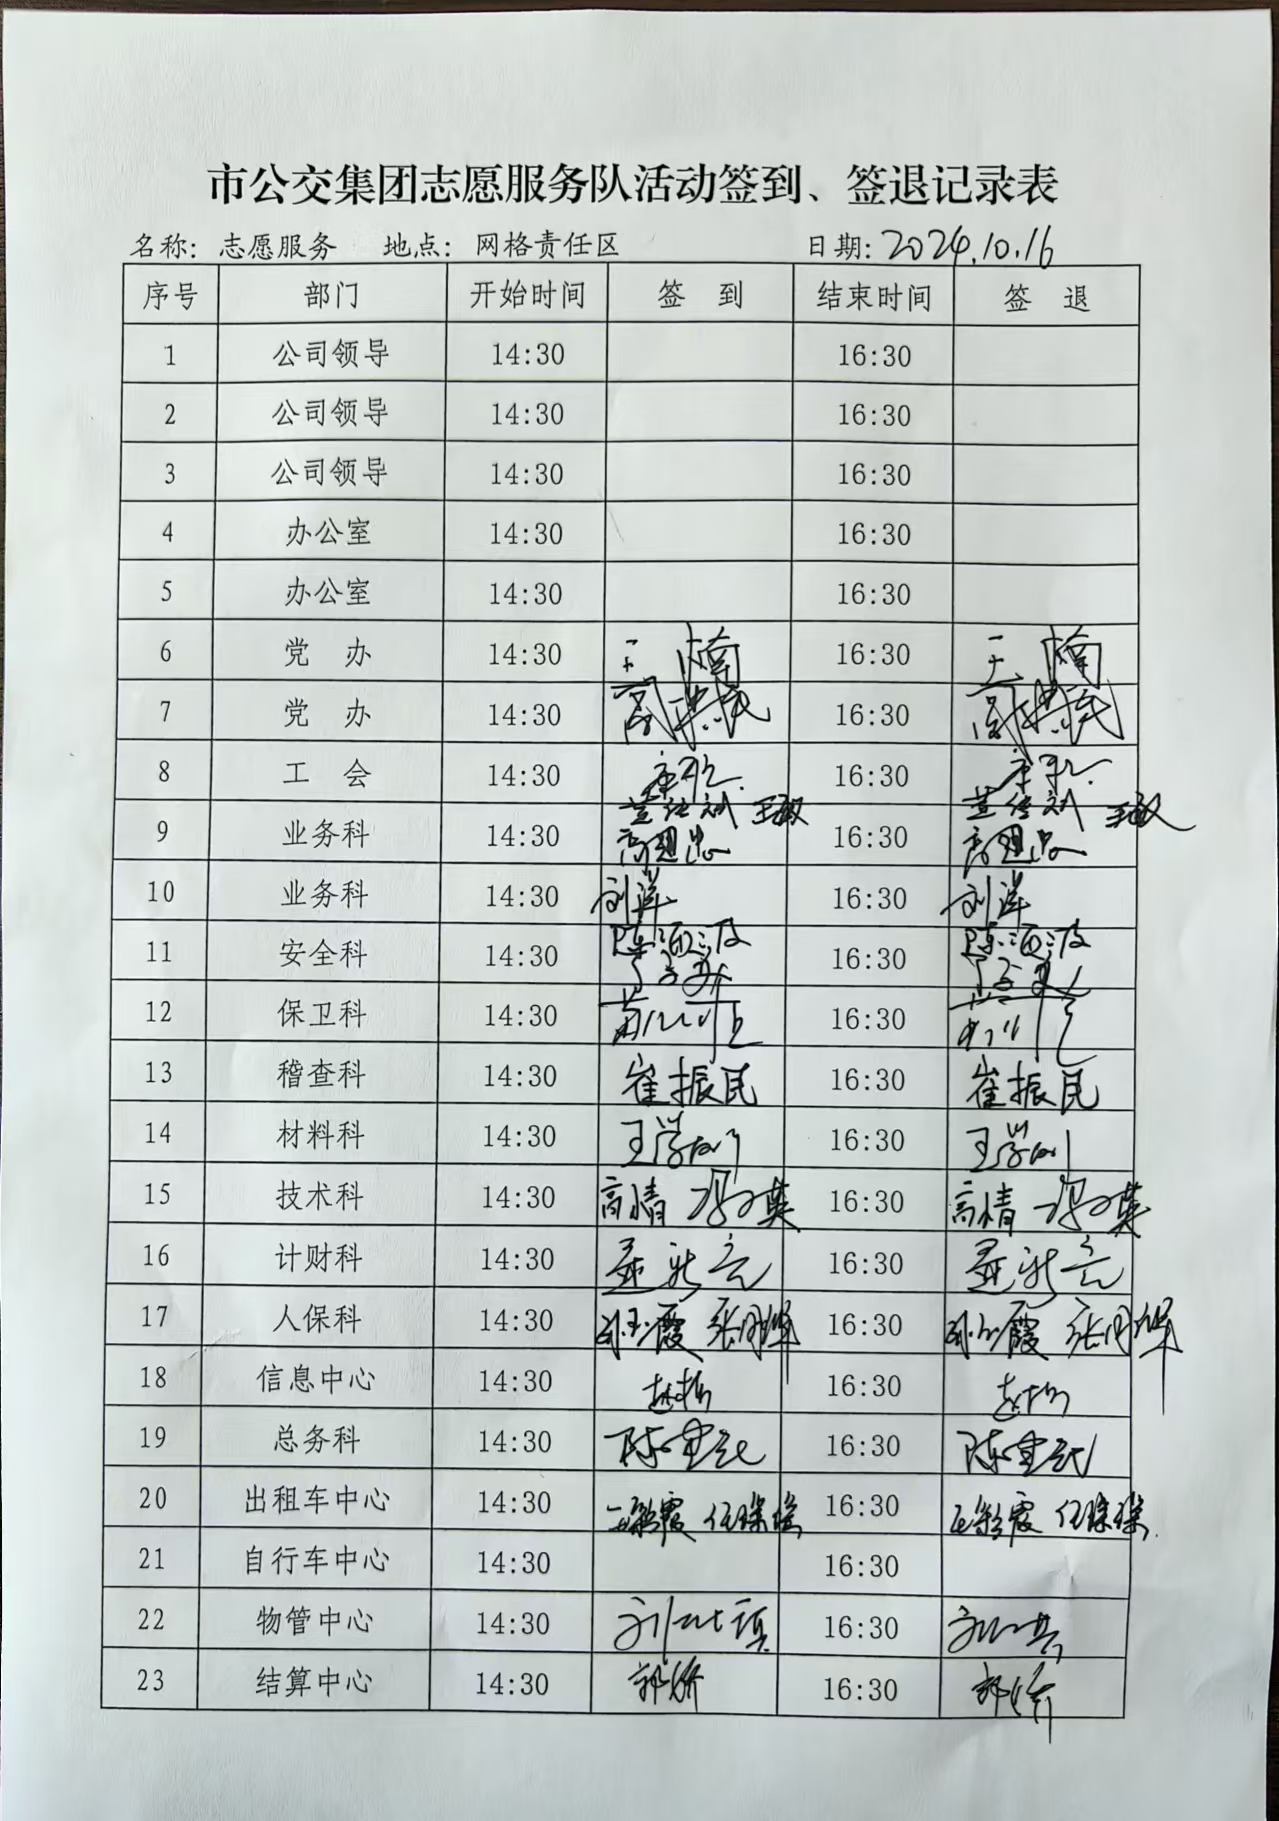 市公交集团志愿服务队活动签到、签退记录表
名称：志愿服务 地点：网格责任区 日期：2024.10.16
序号 部门 开始时间 签 到 结束时间 签 退
1 公司领导 14:30 16:30
2 公司领导 14:30 16:30
3 公司领导 14:30 16:30
4 办公室 14:30 16:30
5 办公室 14:30 16:30
6 党 办 14:30 王楠 16:30 王楠
7 党 办 14:30 16:30
8 工 会 14:30 16:30
9 业务科 14:30 王敏 16:30 王敏
10 业务科 14:30 刘洋 16:30 刘洋
11 安全科 14:30 16:30
12 保卫科 14:30 16:30
13 稽查科 14:30 崔振民 16:30 崔振民
14 材料科 14:30 16:30
15 技术科 14:30 高倩 16:30 高倩
16 计财科 14:30 16:30
17 人保科 14:30 16:30
18 信息中心 14:30 16:30
19 总务科 14:30 16:30
20 出租车中心 14:30 16:30
21 自行车中心 14:30 16:30
22 物管中心 14:30 16:30
23 结算中心 14:30 16:30